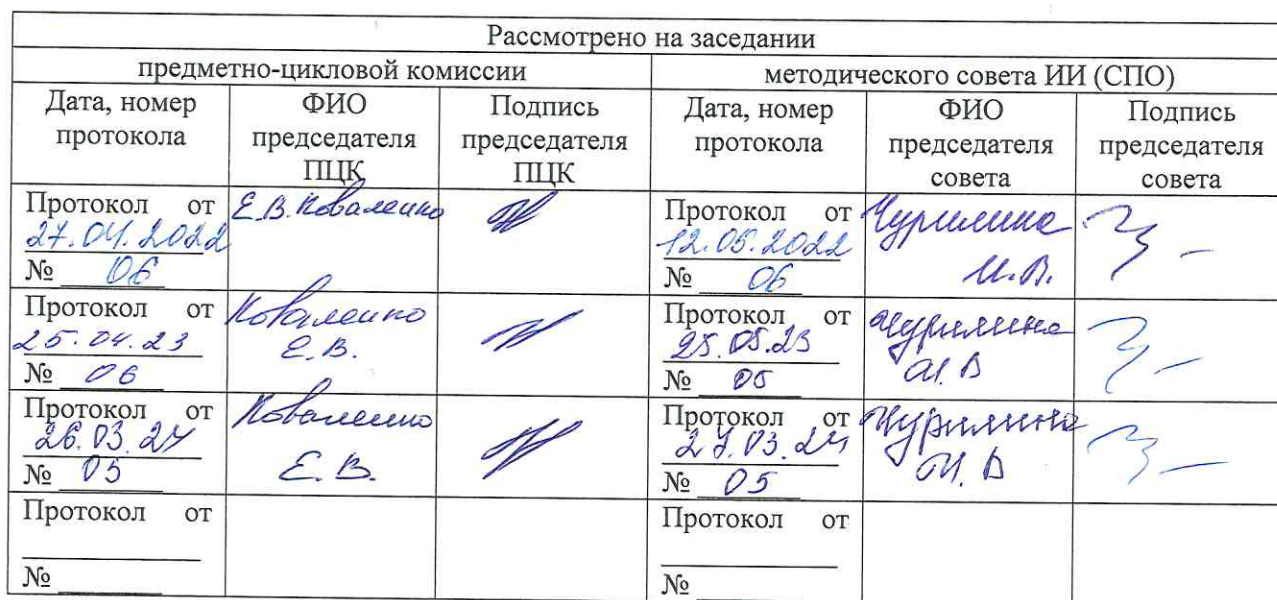 Рассмотрено на заседании
предметно-цикловой комиссии
методического совета ИИ (СПО)
Дата, номер
протокола
ФИО
председателя
ПЦК
Подпись
председателя
ПЦК
Дата, номер
протокола
ФИО
председателя
совета
Подпись
председателя
совета
Протокол от
27.04.2022
№ 06
Е.В. Коваленко
Протокол от
12.05.2022
№ 06
Чурилина
И.В.
Протокол от
25.04.23
№ 06
Коваленко
Е.В.
Протокол от
25.05.23
№ 05
Чурилина
И.В
Протокол от
26.03.24
№ 05
Коваленко
Е.В.
Протокол от
27.03.24
№ 05
Чурилина
И.В
Протокол от
№
Протокол от
№